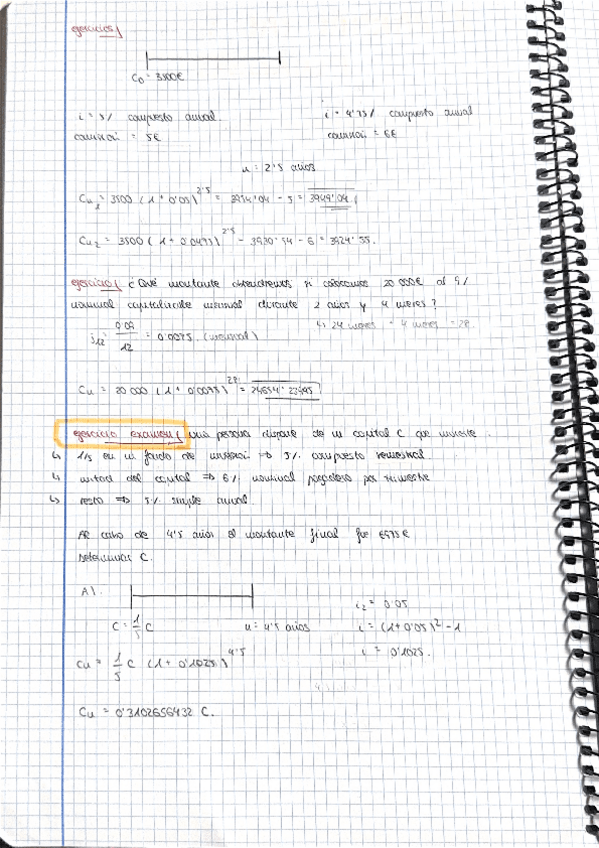 ejercicio /
C₀ = 3500€
i = 5% compuesto anual. i = 4'75% compuesto anual
comisión = 5€ comisión = 6€
n = 2'5 años
Cn₁ = 3500 (1 + 0'05)^2'5 = 3954'04 - 5 = 3949'04 /
Cn₂ = 3500 (1 + 0'0475)^2'5 - 3930'54 - 6 = 3924'55.
ejercicio / ¿Qué montante obtendremos si colocamos 20 000€ al 9%
nominal capitalizable mensual durante 2 años y 4 meses?
j₁₂ = 0'09 / 12 = 0'0075. (mensual) ↳ 24 meses 4 meses = 28.
Cn = 20 000 (1 + 0'0075)^28 = 24654'23495
ejercicio examen / una persona dispone de un capital C que invierte
↳ 1/5 en un fondo de inversión ⇒ 5% compuesto semestral
↳ mitad del capital ⇒ 6% nominal pagadero por
↳ resto ⇒ 5% simple anual
Al cabo de 4'5 años el montante final fue
Determinar C.
A).
C = 1/5 C n = 4'5 años i₂ = 0'05
i = (1 + 0'05)² - 1
Cn = 1/5 C (1 + 0'1025)^4'5 i = 0'1025.
Cn = 0'3102656432 C.